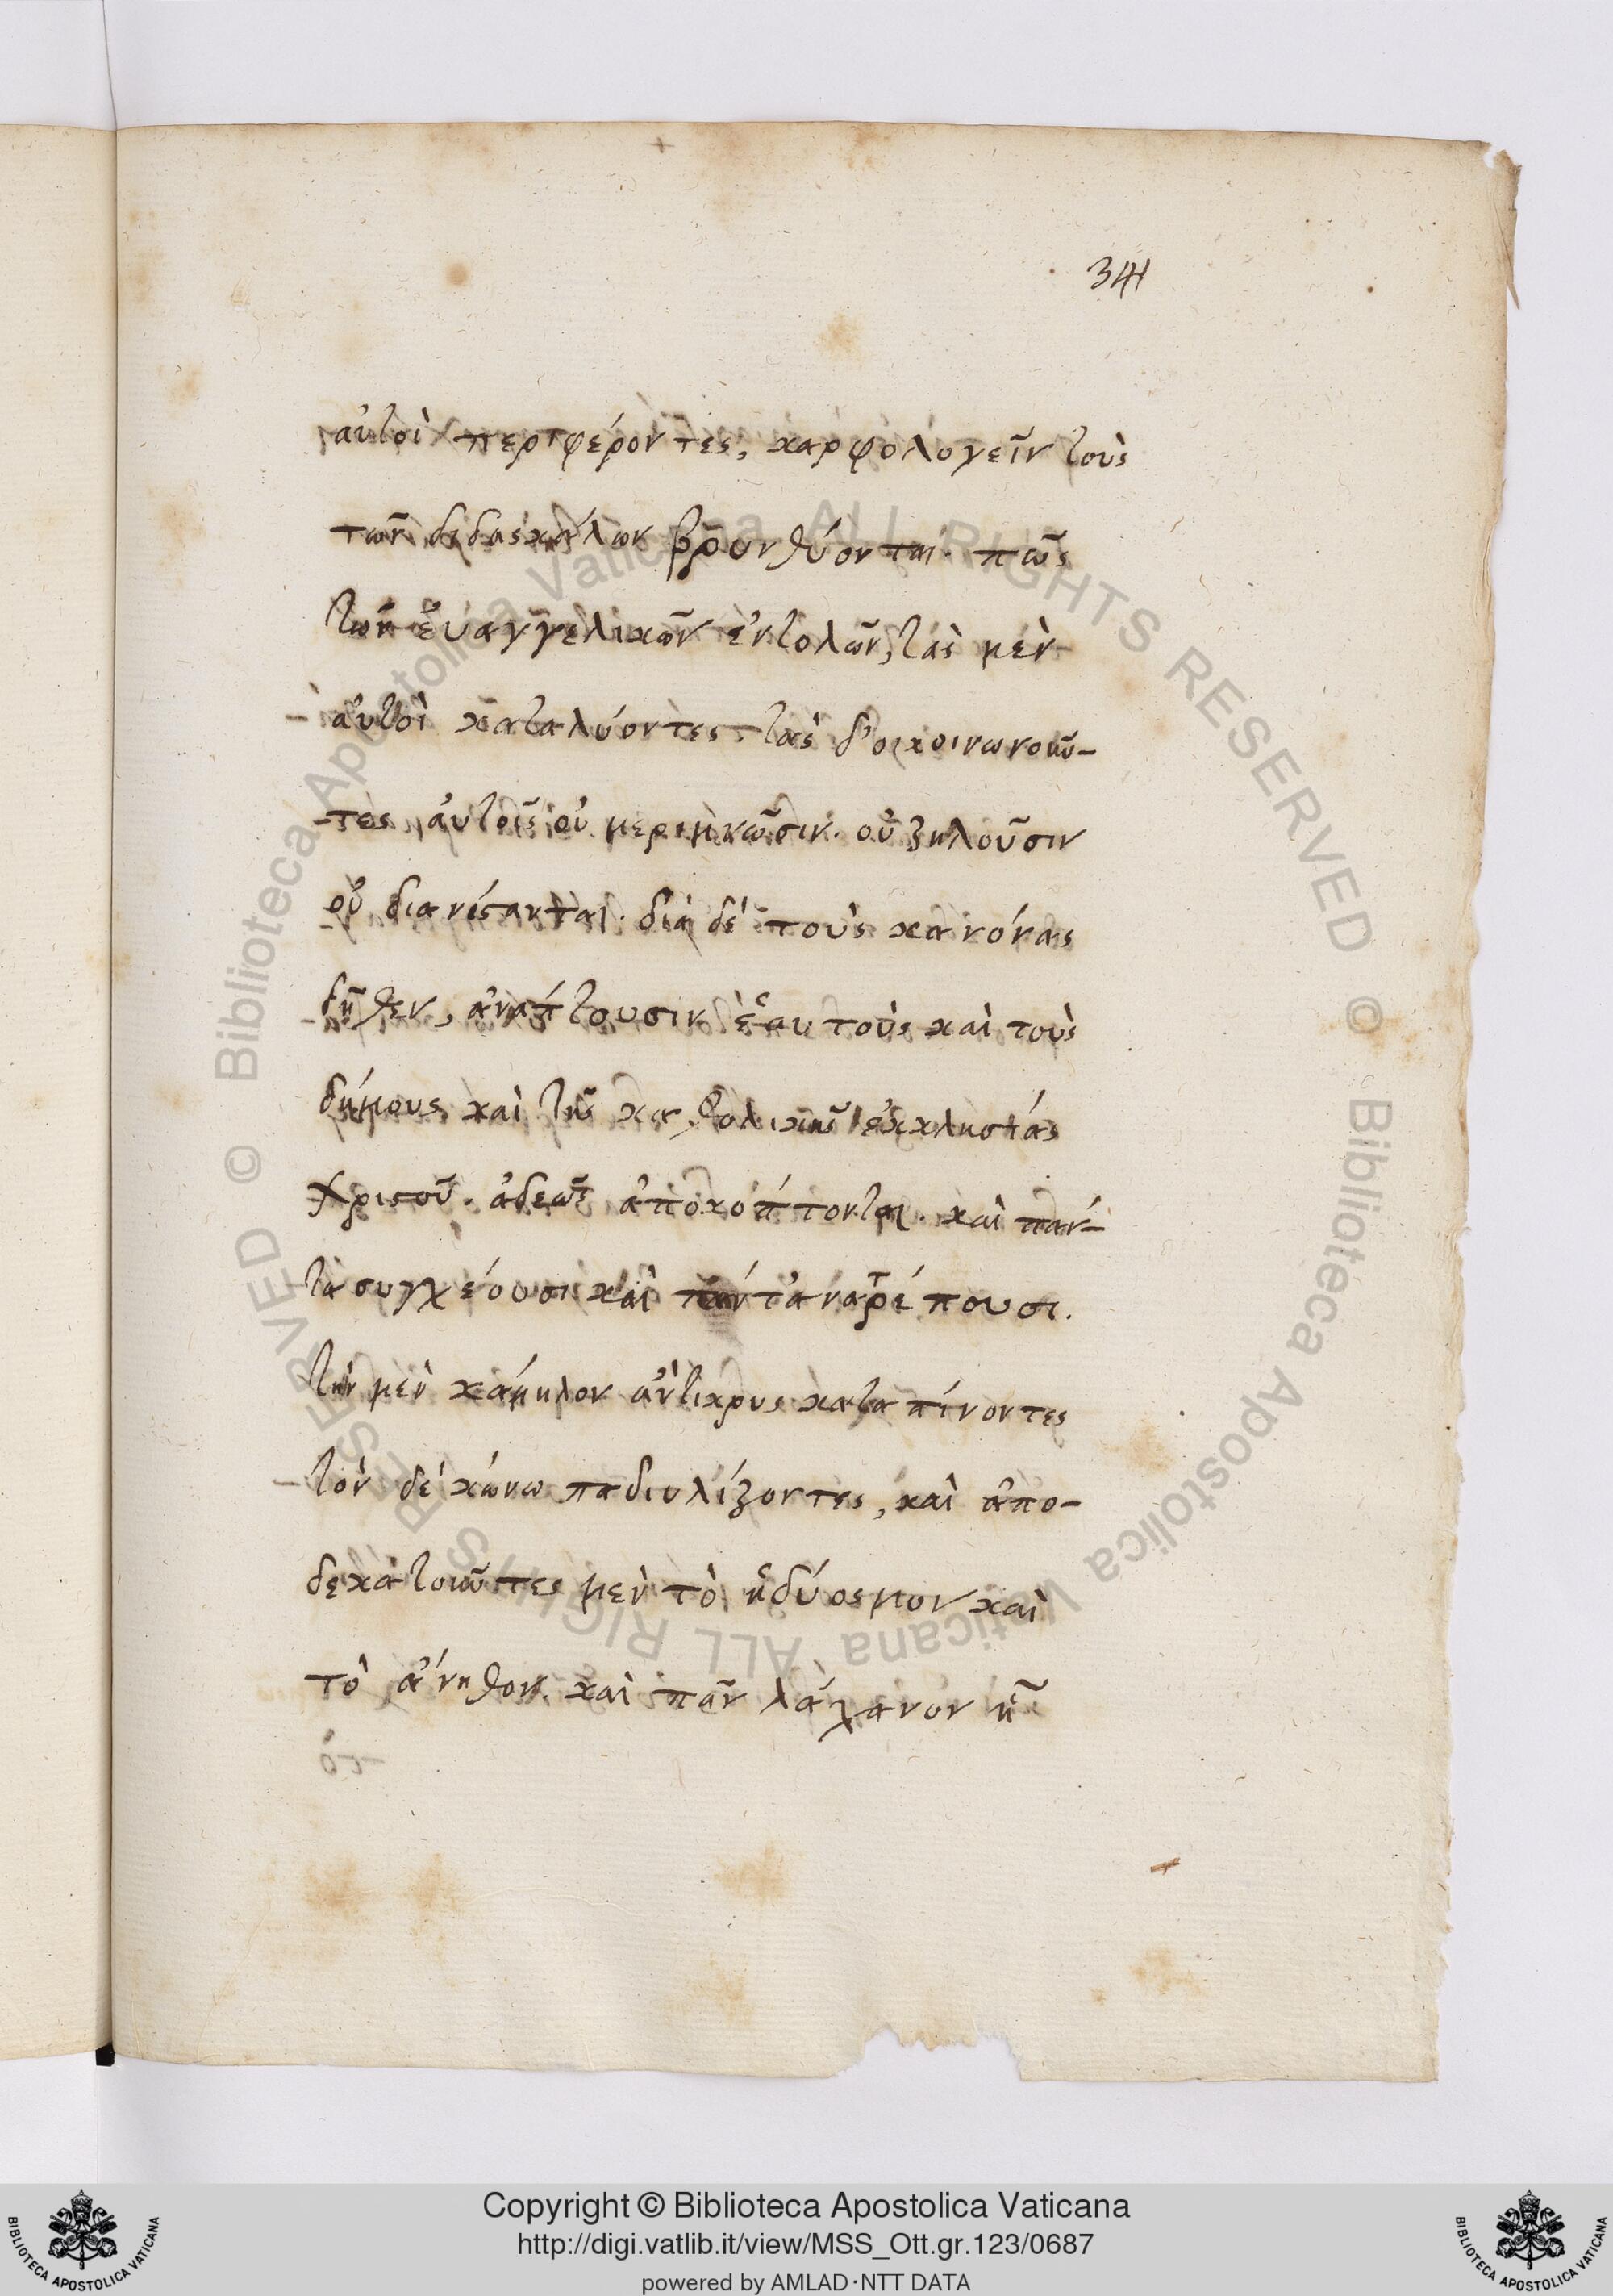 341
αὐτοὶ περιφέροντες, καρφολογεῖν τοὺς
τῶν διδασκάλων βρουνθύονται. πῶς
τῶν εὐαγγελικῶν ἐντολῶν, τὰς μὲν
αὐτοὶ καταλύοντες τὰς δ' οἱ κοινωνοῦν-
τες αὐτοῖς οὐ μεριμνῶσιν. οὐ ζηλοῦσιν
οὐ διανίστανται. διὰ δὲ τοὺς κανόνας
δῆθεν, ἀνάπτουσιν ἑαυτοὺς καὶ τοὺς
δήμους καὶ τῆς καθολικῆς ἐκκλησίας
Χριστοῦ. ἀδεῶς ἀποκόπτονται. καὶ πάν-
τα συγχέουσι καὶ πάντ' ἀνατρέπουσι.
τὴν μὲν κάμηλον ἄντικρυς καταπίνοντες
τὸν δὲ κώνωπα διυλίζοντες, καὶ ἀπο-
δεκατοῦντες μὲν τὸ ἡδύοσμον καὶ
τὸ ἄνηθον. καὶ πᾶν λάχανον ἢ
© Biblioteca Apostolica Vaticana ALL RIGHTS RESERVED © Biblioteca Apostolica Vaticana ALL RIGHTS RESERVED
BIBLIOTECA APOSTOLICA VATICANA
Copyright © Biblioteca Apostolica Vaticana
http://digi.vatlib.it/view/MSS_Ott.gr.123/0687
powered by AMLAD·NTT DATA
BIBLIOTECA APOSTOLICA VATICANA